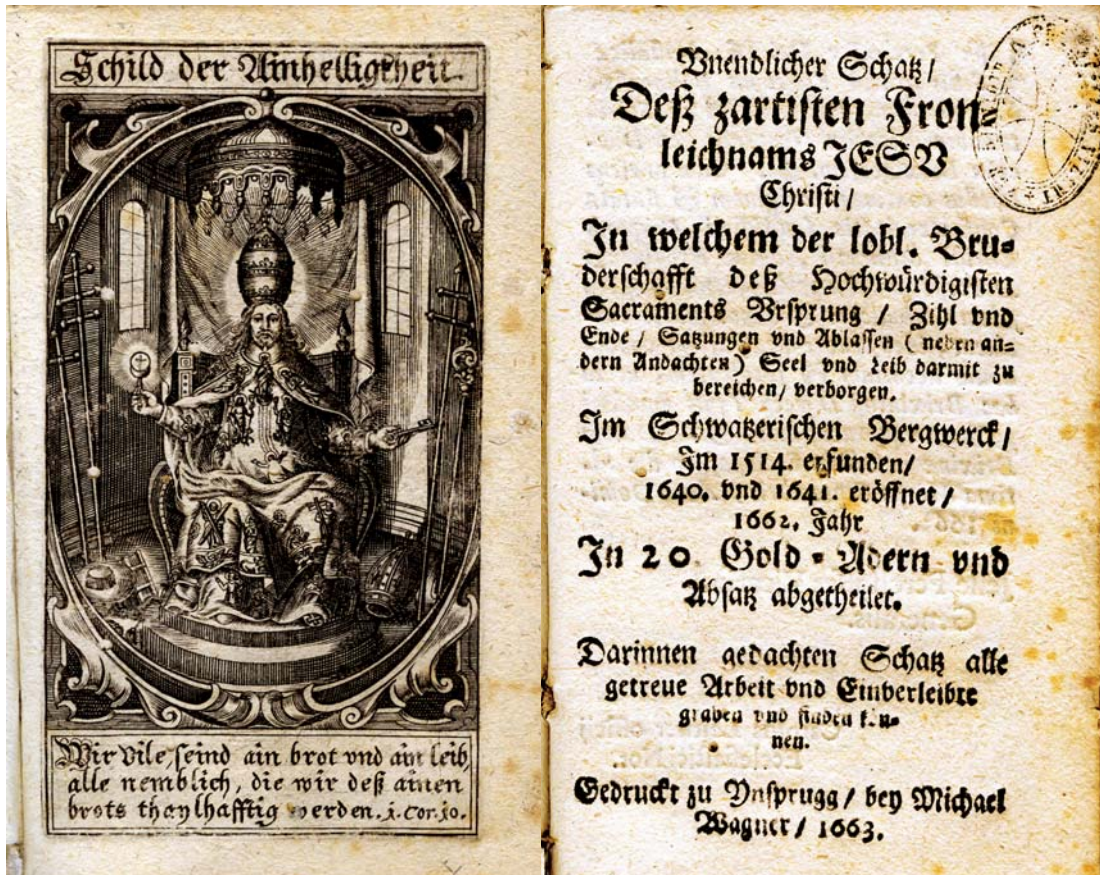 Schild der Ainhelligkheit.
Wir vile, seind ain brot vnd ain leib,
alle nemblich, die wir deß ainen
brots thaylhafftig werden. 1. Cor. 10.
Vnendlicher Schatz /
Deß zartisten Fron-
leichnams JESV
Christi /
In welchem der lobl. Bru-
derschafft deß Hochwürdigisten
Sacraments Vrsprung / Zihl vnd
Ende / Satzungen vnd Ablassen (neben an-
dern Andachten) Seel vnd Leib darmit zu
bereichen / verborgen.
Im Schwatzerischen Bergwerck /
Im 1514. erfunden /
1640. vnd 1641. eröffnet /
1662. Jahr
In 20 Gold-Adern vnd
Absatz abgetheilet.
Darinnen gedachten Schatz alle
getreue Arbeit vnd Einverleibte
graben vnd finden kön-
nen.
Gedruckt zu Ynsprugg / bey Michael
Wagner / 1663.